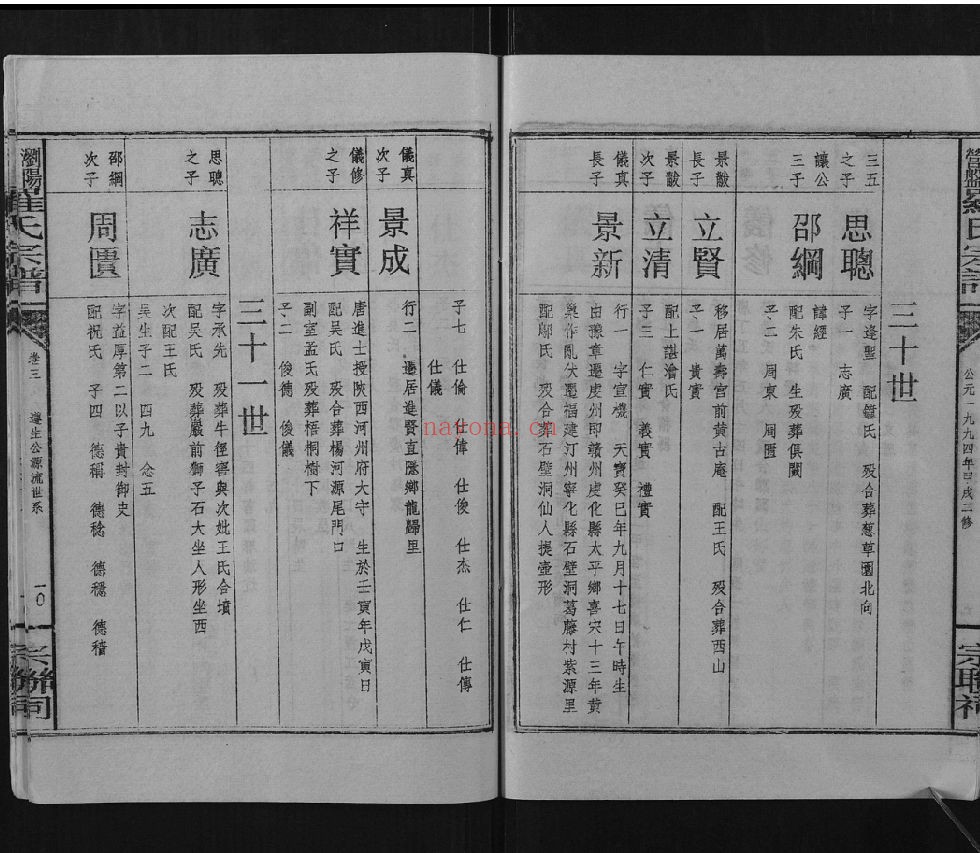 公元一九九四年甲戌三修
三十世
三五之子
思聰
字逢聖 配鍾氏 殁合葬葱草園北向
子一 志廣
讓公三子
邵綱
諱經
配朱氏 生殁葬俱闕
子二 周東 周匱
景㪚長子
立賢
移居萬壽宮前黄古庵 配王氏 殁合葬西山
子一 貴實
景㪚次子
立清
配上諶淪氏
子三 仁實 義實 禮實
儀真長子
景新
行一 字宣機 天寶癸巳年九月十七日午時生
由豫章遷虔州即贛州虔化縣太平鄉喜災十三年黄
巢作亂伏遷福建汀州寧化縣石壁洞葛藤村紫源里
配鄔氏 殁合葬石壁洞仙人提壺形
子七 仕倫 仕偉 仕俊 仕杰 仕仁 仕傳
仕儀
儀真次子
景成
行二 遷居進賢直隱鄉龍歸里
儀修之子
祥實
唐進士授陝西河州府大守 生於壬寅年戊寅日
配吴氏 殁合葬楊河源尾門口
副室孟氏殁葬梧桐樹下
子二 俊德 俊儀
三十一世
思聰之子
志廣
字承先 殁葬牛徑窖與次妣王氏合墳
配吴氏 殁葬嚴前獅子石大坐人形坐西
次配王氏
吴生子二 四九 念五
邵綱次子
周匱
字益厚第二以子貴封御史
配祝氏 子四 德稱 德稔 德穩 德穡
瀏陽羅氏宗譜
卷三
遵生公源流世系
一〇
宗聯祠
natona.cn